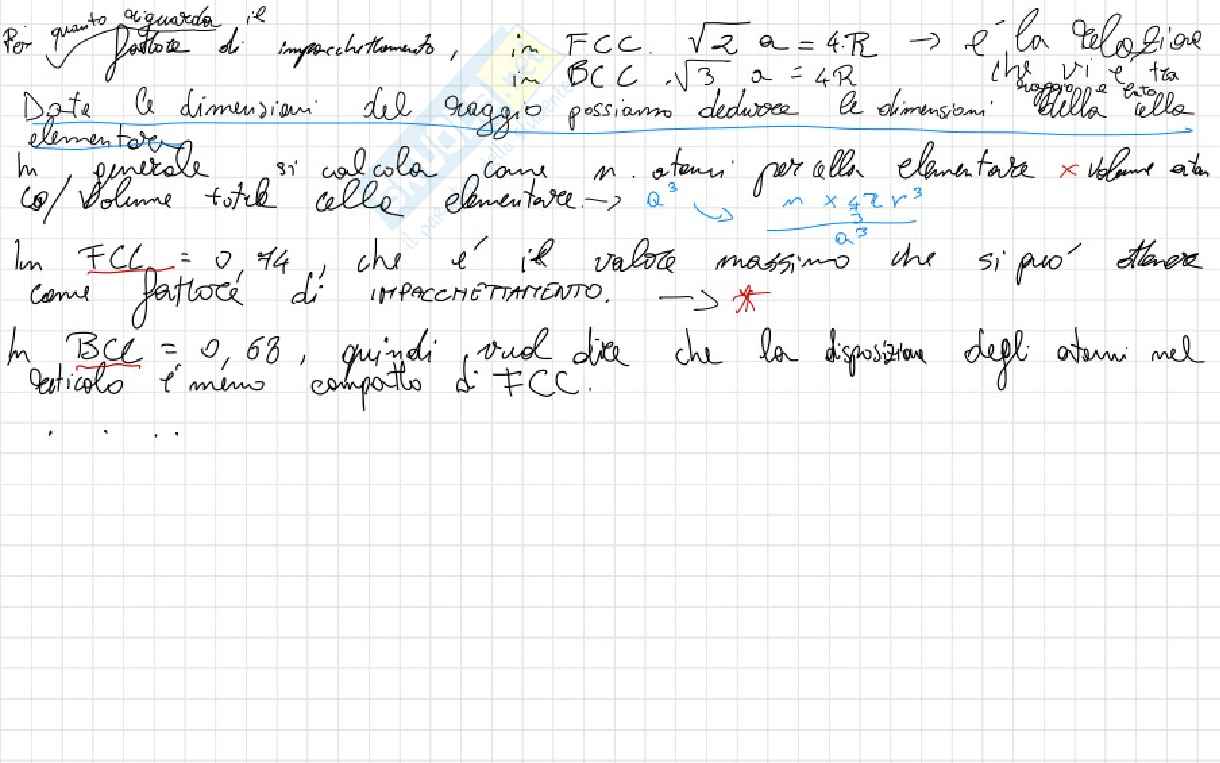 Per quanto riguarda il
fattore di impacchettamento, in FCC. √2 a = 4R → è la relazione
in BCC. √3 a = 4R che vi è tra
raggio e lato
Date le dimensioni del raggio possiamo dedurre le dimensioni della cella
elementare
In generale si calcola come n. atomi per cella elementare × volume atomi
co/Volume totale cella elementare → a³ n × 4 π r³
3
a³
In FCC = 0,74, che é il valore massimo che si puó ottenere
come fattore di IMPACCHETTAMENTO. → *
In BCC = 0,68, quindi vuol dire che la disposizione degli atomi nel
reticolo é meno compatto di FCC.
. . . .